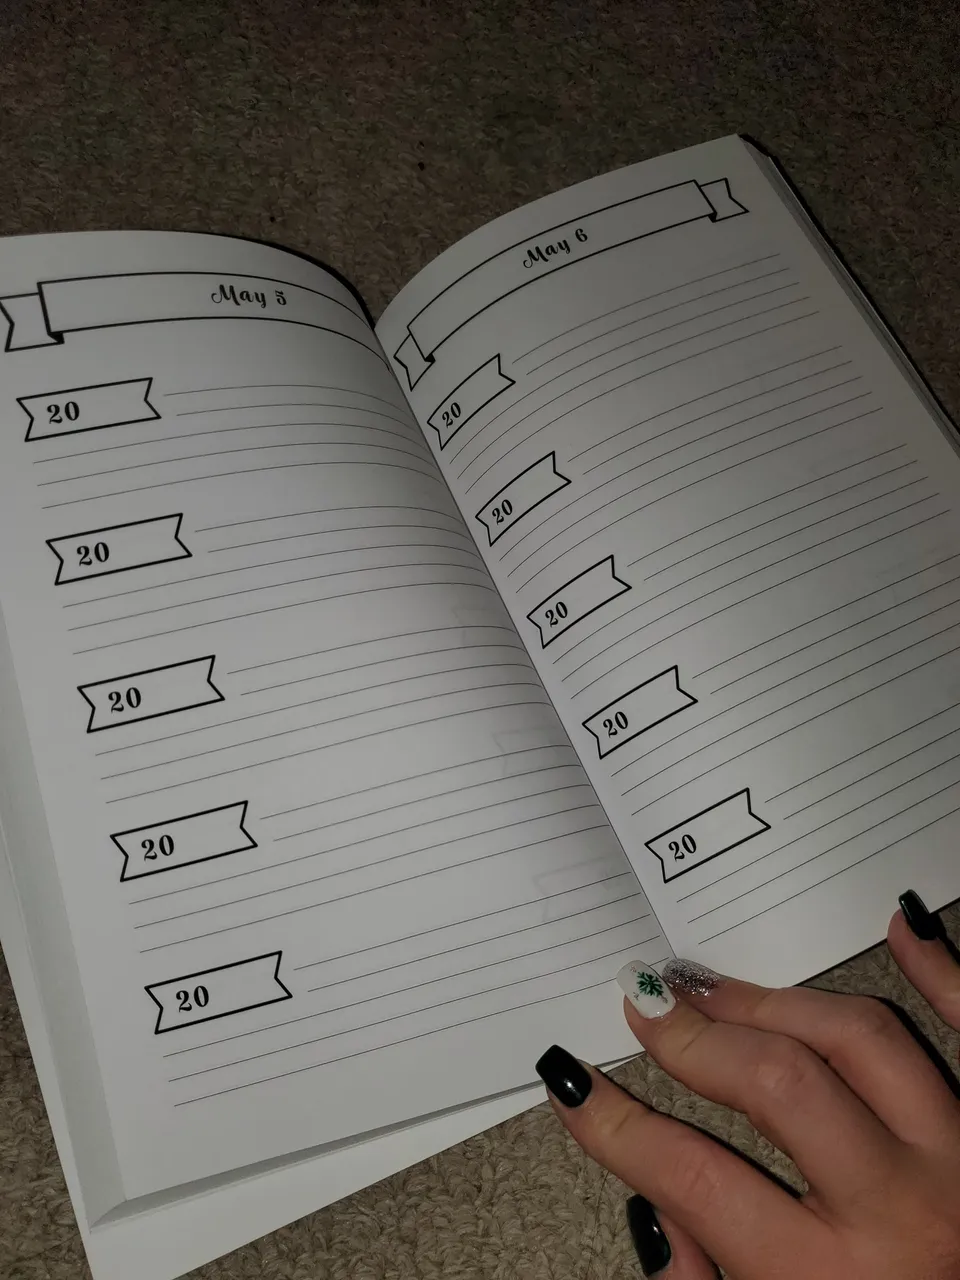 May 5
20
20
20
20
20
May 6
20
20
20
20
20